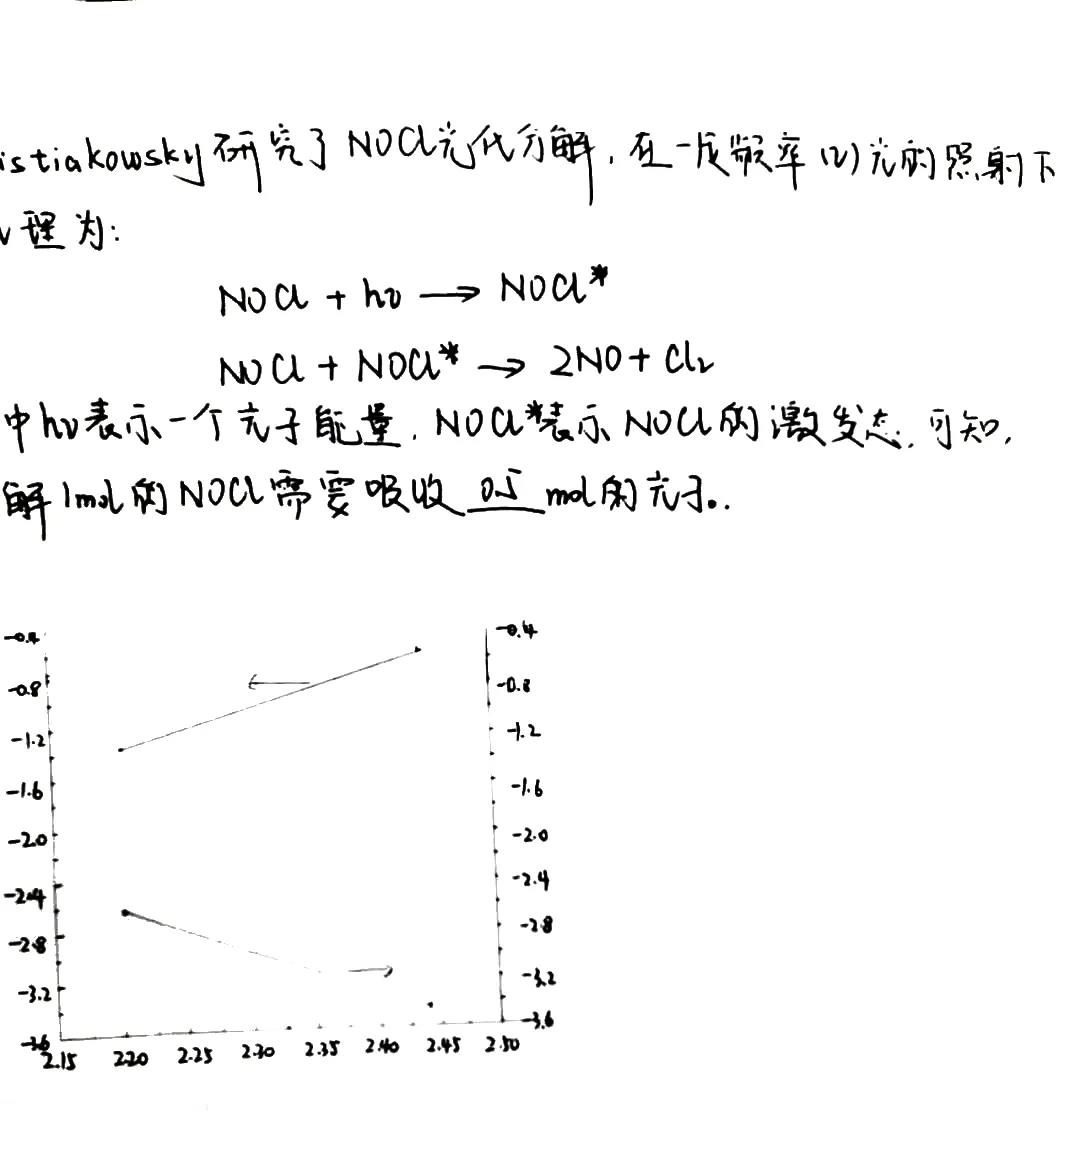 istiakowsky研究了NOCl光化分解，在一定频率(ν)光的照射下
理为：
NOCl + hν → NOCl*
NOCl + NOCl* → 2NO + Cl₂
中hν表示一个光子能量，NOCl*表示NOCl的激发态，可知，
解1mol的NOCl需要吸收 0.5 mol的光子。
-0.4 -0.4
-0.8 -0.8
-1.2 -1.2
-1.6 -1.6
-2.0 -2.0
-2.4 -2.4
-2.8 -2.8
-3.2 -3.2
-3.6 -3.6
2.15 2.20 2.25 2.30 2.35 2.40 2.45 2.50